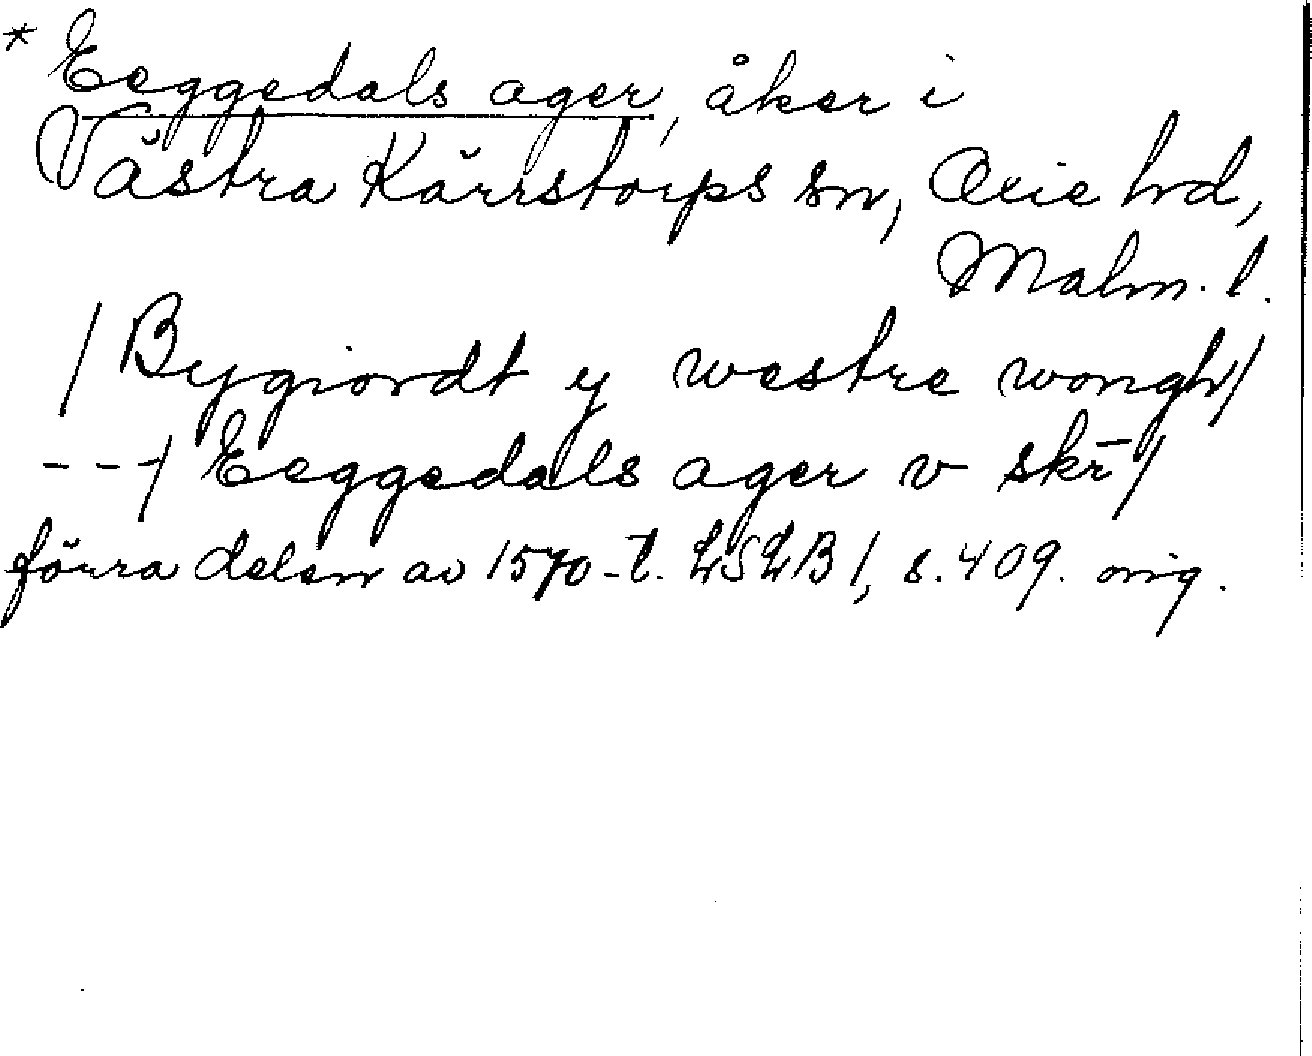 * Eeggedals ager, åker i
Västra Kärrstorps sn, Oxie hd,
Malm. l.
/ Bygiordt y westre wongh/
---/ Eeggedals ager v skr̄/
förra delen av 1570-t. LSLB 1, s. 409. orig.